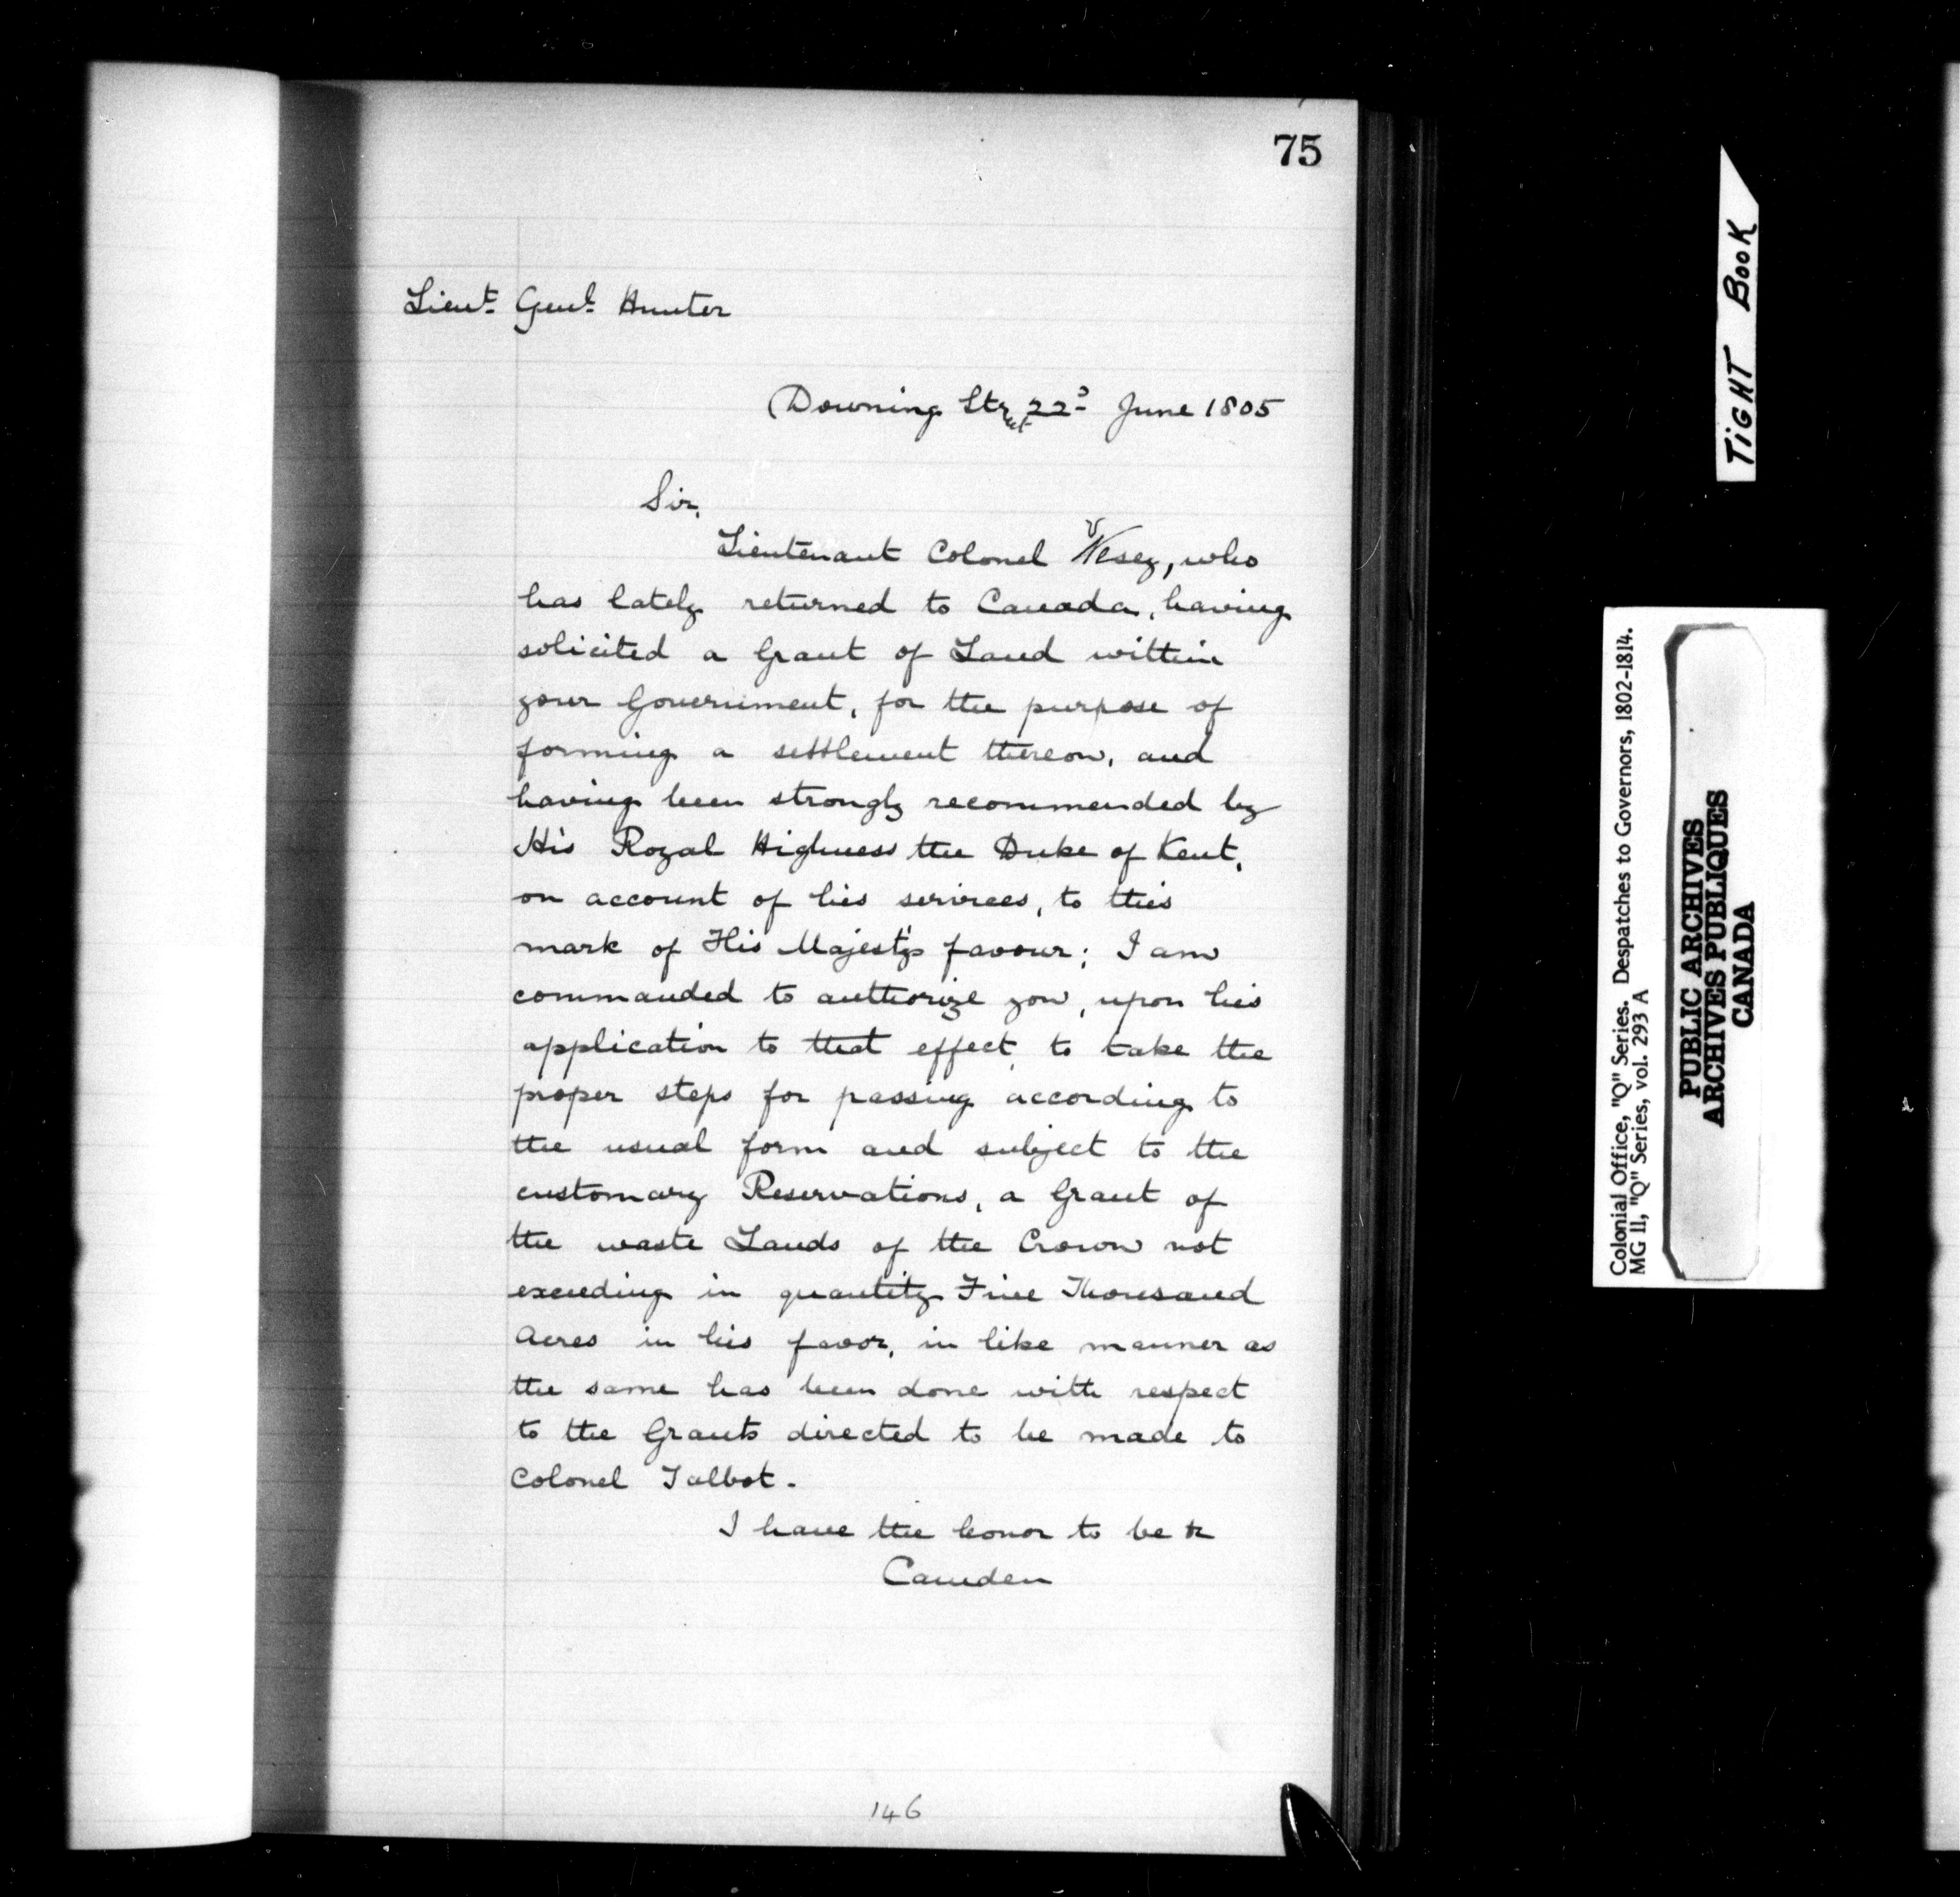 75
Lieut. Genl. Hunter
Downing Street 22d June 1805
Sir,
Lieutenant Colonel Vesey, who
has lately returned to Canada, having
solicited a Grant of Land within
your Government, for the purpose of
forming a settlement thereon, and
having been strongly recommended by
His Royal Highness the Duke of Kent,
on account of his services, to this
mark of His Majesty's favour; I am
commanded to authorize you, upon his
application to that effect, to take the
proper steps for passing according to
the usual form and subject to the
customary Reservations, a Grant of
the waste Lands of the Crown not
exceeding in quantity Five Thousand
Acres in his favor, in like manner as
the same has been done with respect
to the Grants directed to be made to
Colonel Talbot.
I have the honor to be &
Camden
146
TIGHT BOOK
Colonial Office, "Q" Series. Despatches to Governors, 1802-1814.
MG 11, "Q" Series, vol. 293 A
PUBLIC ARCHIVES
ARCHIVES PUBLIQUES
CANADA